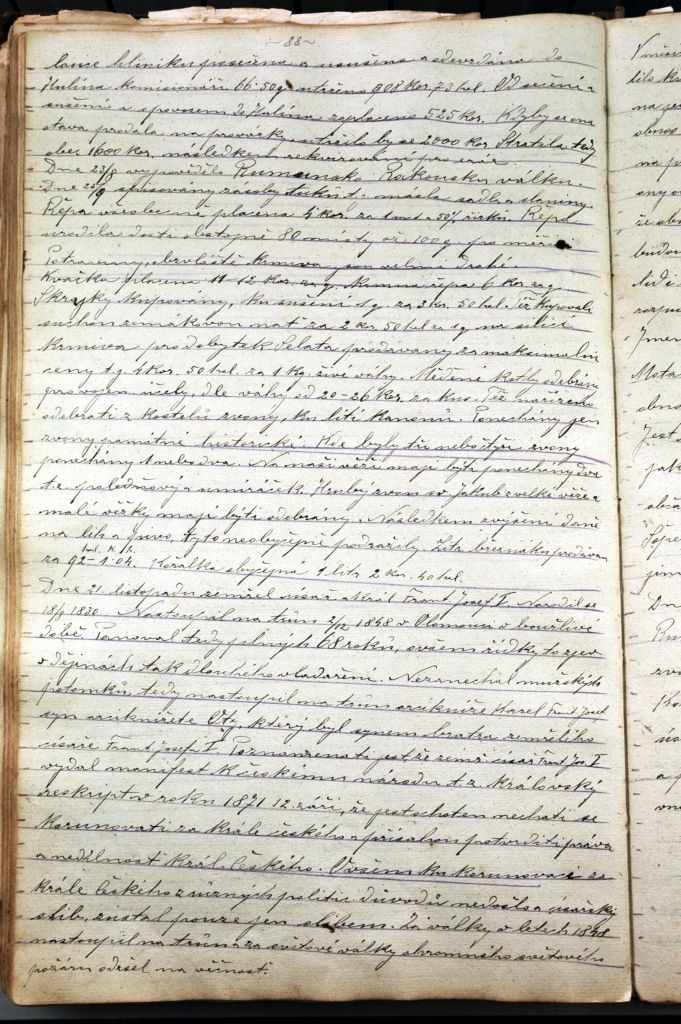 ~ 88 ~
louce hliníku posečena a usušena a odevzdána do
Hulína komisionáři 66·50q utrženo 908 Kor. 73 hal. Od sečení a
sušení i s povozem do Hulína zaplaceno 525 Kor. Kdyby se ona
otava prodala na provázky utržilo by se 2000 Kor Stratila tedy
obec 1600 Kor. následkem rekvirování pro erár.
Dne 28/8 vypovědělo Rumunsko Rakousku válku.
Dne 20/9 spisovány zásoby tuků, t. másla sádla a slaniny
Řepa všeobecně placena 4 kor. za 1 mct a 50% řízků. Řepa
urodila dosti obstojně 80 místy až 100 q. po měřici
Potraviny, obzvláště krmiva jsou velmi drahé.
Kvačka placena 11-12 Kor. za q. Krmná řepa 6 Kor za q.
Skrojky kupovány, ku sušení 1 q. za 3 kr. 50 hal. Též kupovali
suchou zemákovou nať za 2 kr. 50 hal za 1 q na
krmiva pro dobytek Selata prodávány za maksimalní
ceny t. j. 4 kor. 50 hal. za 1 kg. živé váhy. Měděné kotly odebrány
pro vojen účely, dle váhy od 20-26 Kor. za kus. Též nařízeno
odebrati z kostelů zvony, ku lití kanonů. Ponechány jen
zvony památné historické. Kde byly tři nebo čtyři zvony
ponechány 1 nebo dva. Na naší věži mají býti ponechány dva
t. z. poledňový a umíráček. Hrubý zvon sv. Jakub z velké věže a
malé věžky mají býti odebrány. Následkem zvýšení daně
na líh a pivo, tyto neobyčejně podražily. Litr březňáku prodáván
za 92 hal. – K 1·04 h. Kořalka obyčejná 1 litr 2 kor. 40 hal.
Dne 21. listopadu zemřel císař a král Frant Josef I. Narodil se
18/8 1830. Nastoupil na trůn 2/12 1848 v Olomouci v bouřlivé
době. Panoval tedy plných 68 roků, ovšem řídký to zjev
v dějinách tak dlouhého vladaření. Nezanechal mužských
potomků, tedy nastoupil na trůn arcikníže Karel Frant Josef
syn arciknížete Oty, který byl synem bratra zemřelého
císaře Frant Josef I. Poznamenati jest, že zemř. císař Frant Jos I
vydal manifest k českému národu t. z. královský
reskript v roku 1871 12. září, že jest ochoten nechati se
korunovati za krále českého a přísahou potvrditi práva
a nedílnost král. Českého. Ovšem ku korunovaci za
krále Českého z různých politic důvodů nedošlo a císařský
slib, zůstal pouze jen slibem. Za války v letech 1848
nastoupil na trůn a za světové války ohromného světového
požáru odešel na věčnost.